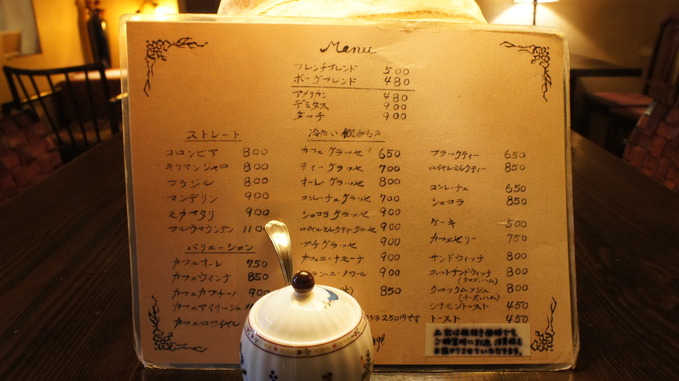 Menu
フレンチブレンド 500
ボーグブレンド 480
アメリカン 480
デミタス 900
ダッチ 900
ストレート
コロンビア 800
キリマンジャロ 800
ブラジル 800
マンデリン 900
モカマタリ 900
ブルウマウンテン 1100
バリエーション
カフェオーレ 750
カフェウィンナ 850
カフェカプチーノ 900
カフェアイリーシュ
カフェロワイヤル
冷たい飲みもの
カフェグラッセ 650
ティーグラッセ 700
オーレグラッセ 800
コンレーチェグラッセ 700
ショコラグラッセ 900
ロイヤルミルクティグラッセ 900
アチグラッセ 900
カフェニーナモーナ 900
ノワール 900
850
は250円です
ブラックティー 650
ロイヤルミルクティー 850
コンレーチェ 650
ショコラ 850
ケーキ 500
カフェゼリー 750
サンドウィッチ 800
ホットサンドウィッチ 800
(ライス・ハム)
クロックムッシュ 800
(チーズ・ハム)
シナモントースト 450
トースト 450